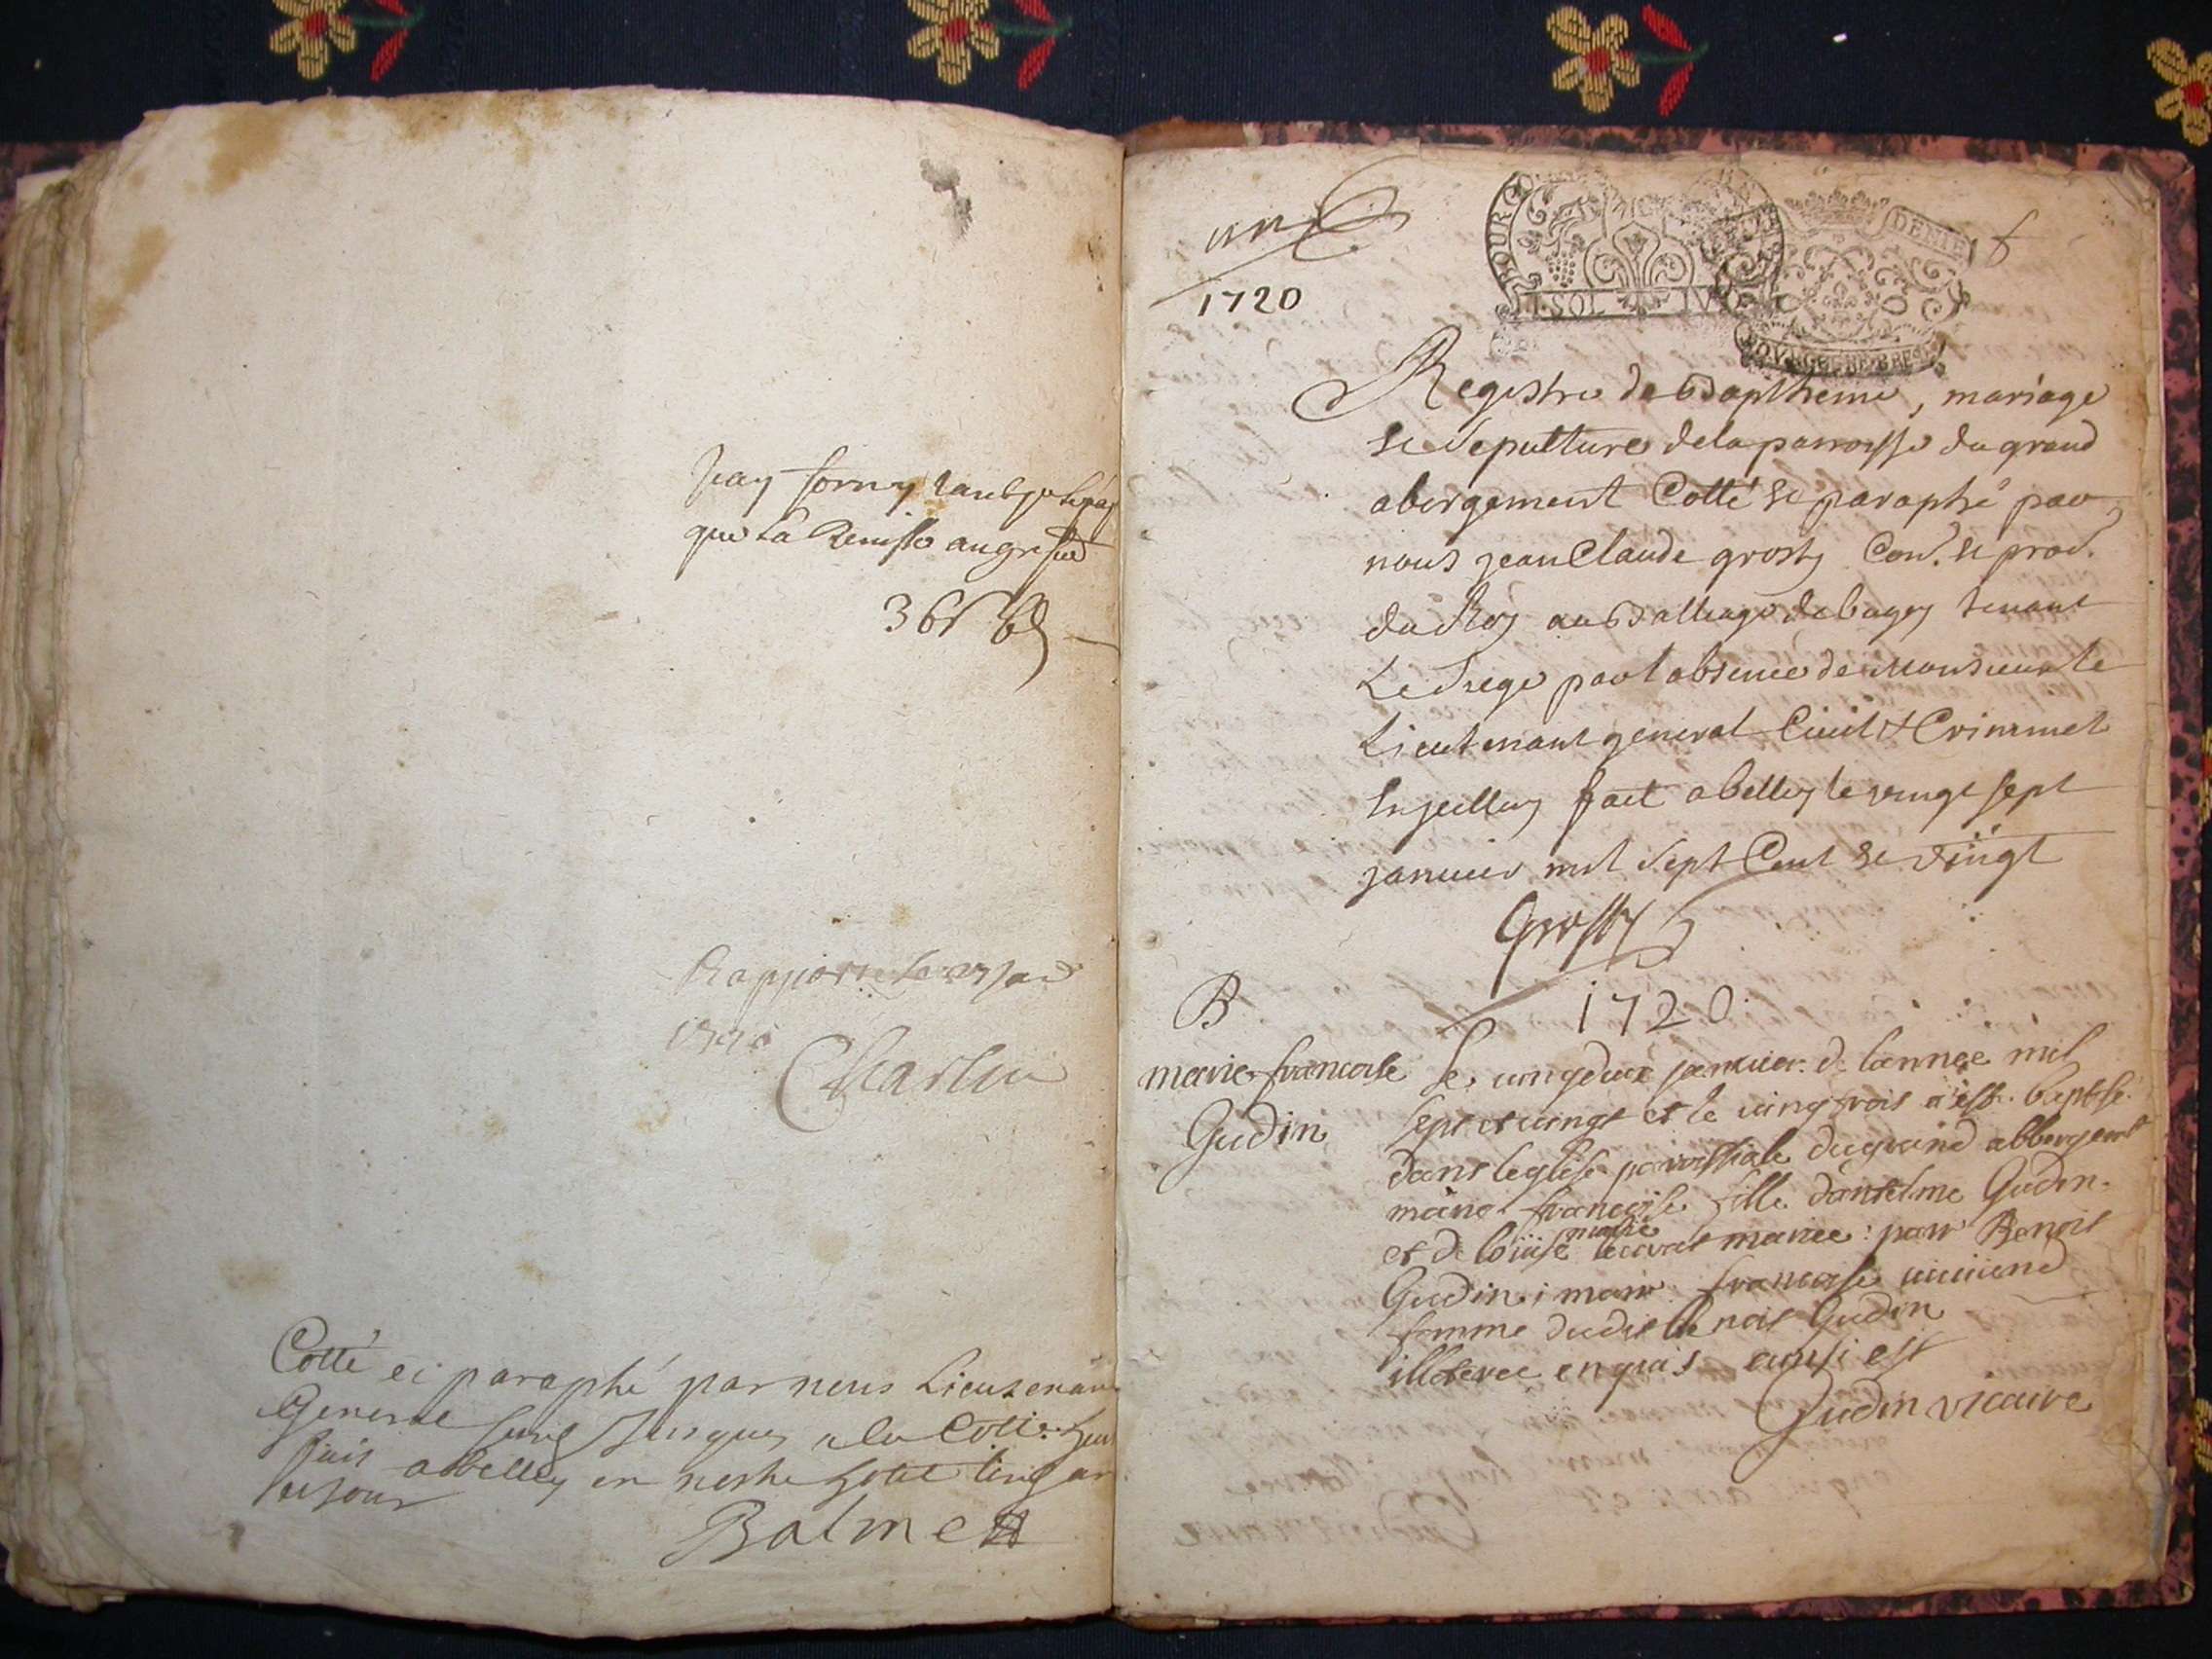 que la Remisse au greffe
Rapporté le
Charlin
Cotté et paraphé par nous Lieutenant
General
fait a Belley en nostre hotel
Balme
un
1720
BOURGO
SOL
DENIE
Registre de Baptheme, mariage
et sepulture de la parroisse du grand
abergement Cotté et paraphé par
nous jean Claude grosty Con. et proc.
du Roy au Balliage de bugey tenant
Le siege par l absence de Monsieur le
Lieutenant general Civil & Criminel
fait a belley le vingt sept
janvier mil sept Cent et vingt
Grosty
1720
B
marie francoise
Gudin
le vingdeux januier de lannee mil
sept et vingt et le vingtrois a este baptise
dans leglise parroissiale du grand abbergement
marie francoise fille dantelme Gudin
et de loüise mariee : parr Benoit
Gudin ; marr francoise
femme dudit benoit Gudin
illeteree enquis ainsi est
Gudin vicaire